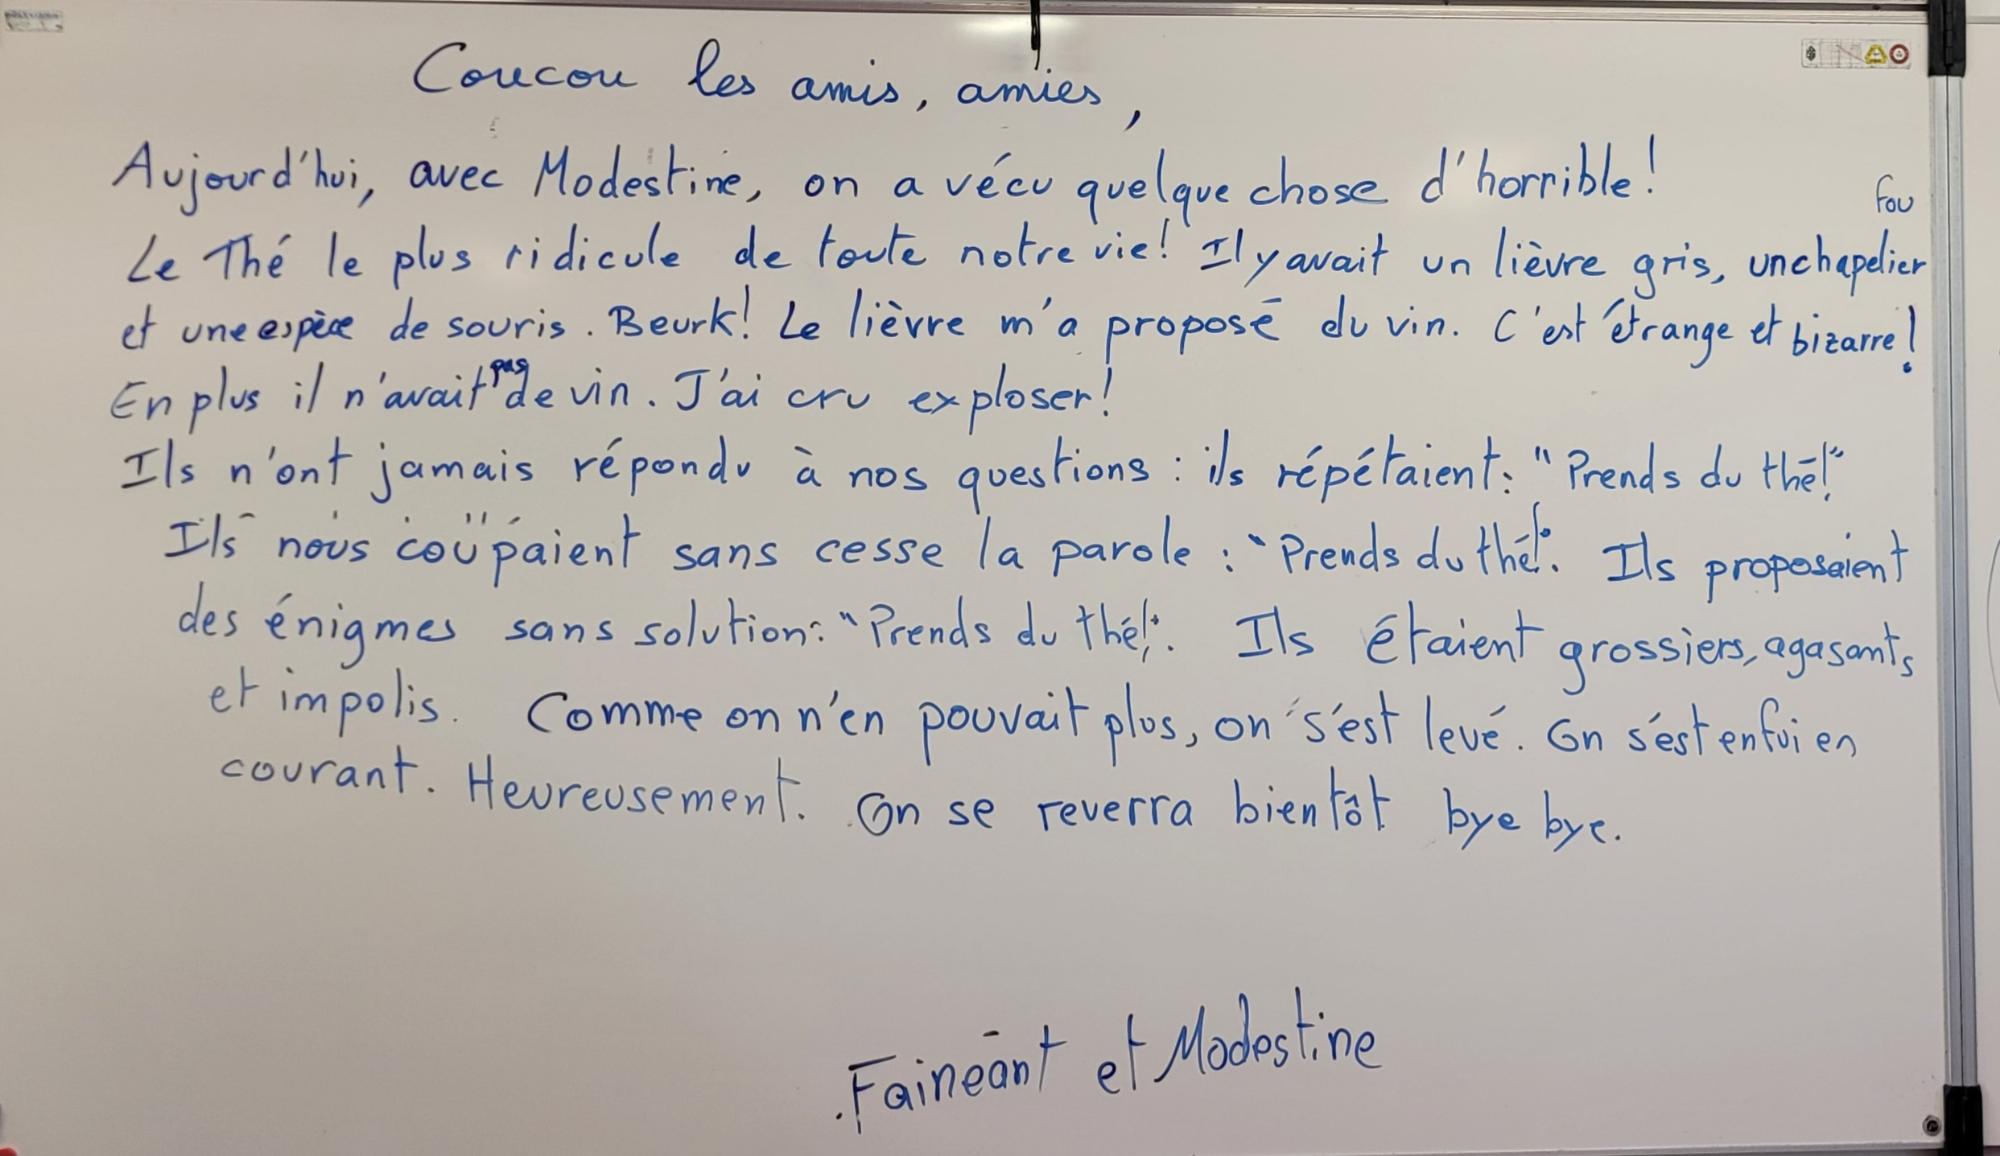 Coucou les amis, amies,
Aujourd'hui, avec Modestine, on a vécu quelque chose d'horrible!
Le Thé le plus ridicule de toute notre vie! Il y avait un lièvre gris, un chapelier fou
et une espèce de souris. Beurk! Le lièvre m'a proposé du vin. C'est étrange et bizarre!
En plus il n'avait pas de vin. J'ai cru exploser!
Ils n'ont jamais répondu à nos questions : ils répétaient: "Prends du thé!"
Ils nous coupaient sans cesse la parole : "Prends du thé!". Ils proposaient
des énigmes sans solution: "Prends du thé!". Ils étaient grossiers, agasants,
et impolis. Comme on n'en pouvait plus, on s'est levé. On s'est enfui en
courant. Heureusement. On se reverra bientôt bye bye.
Fainéant et Modestine